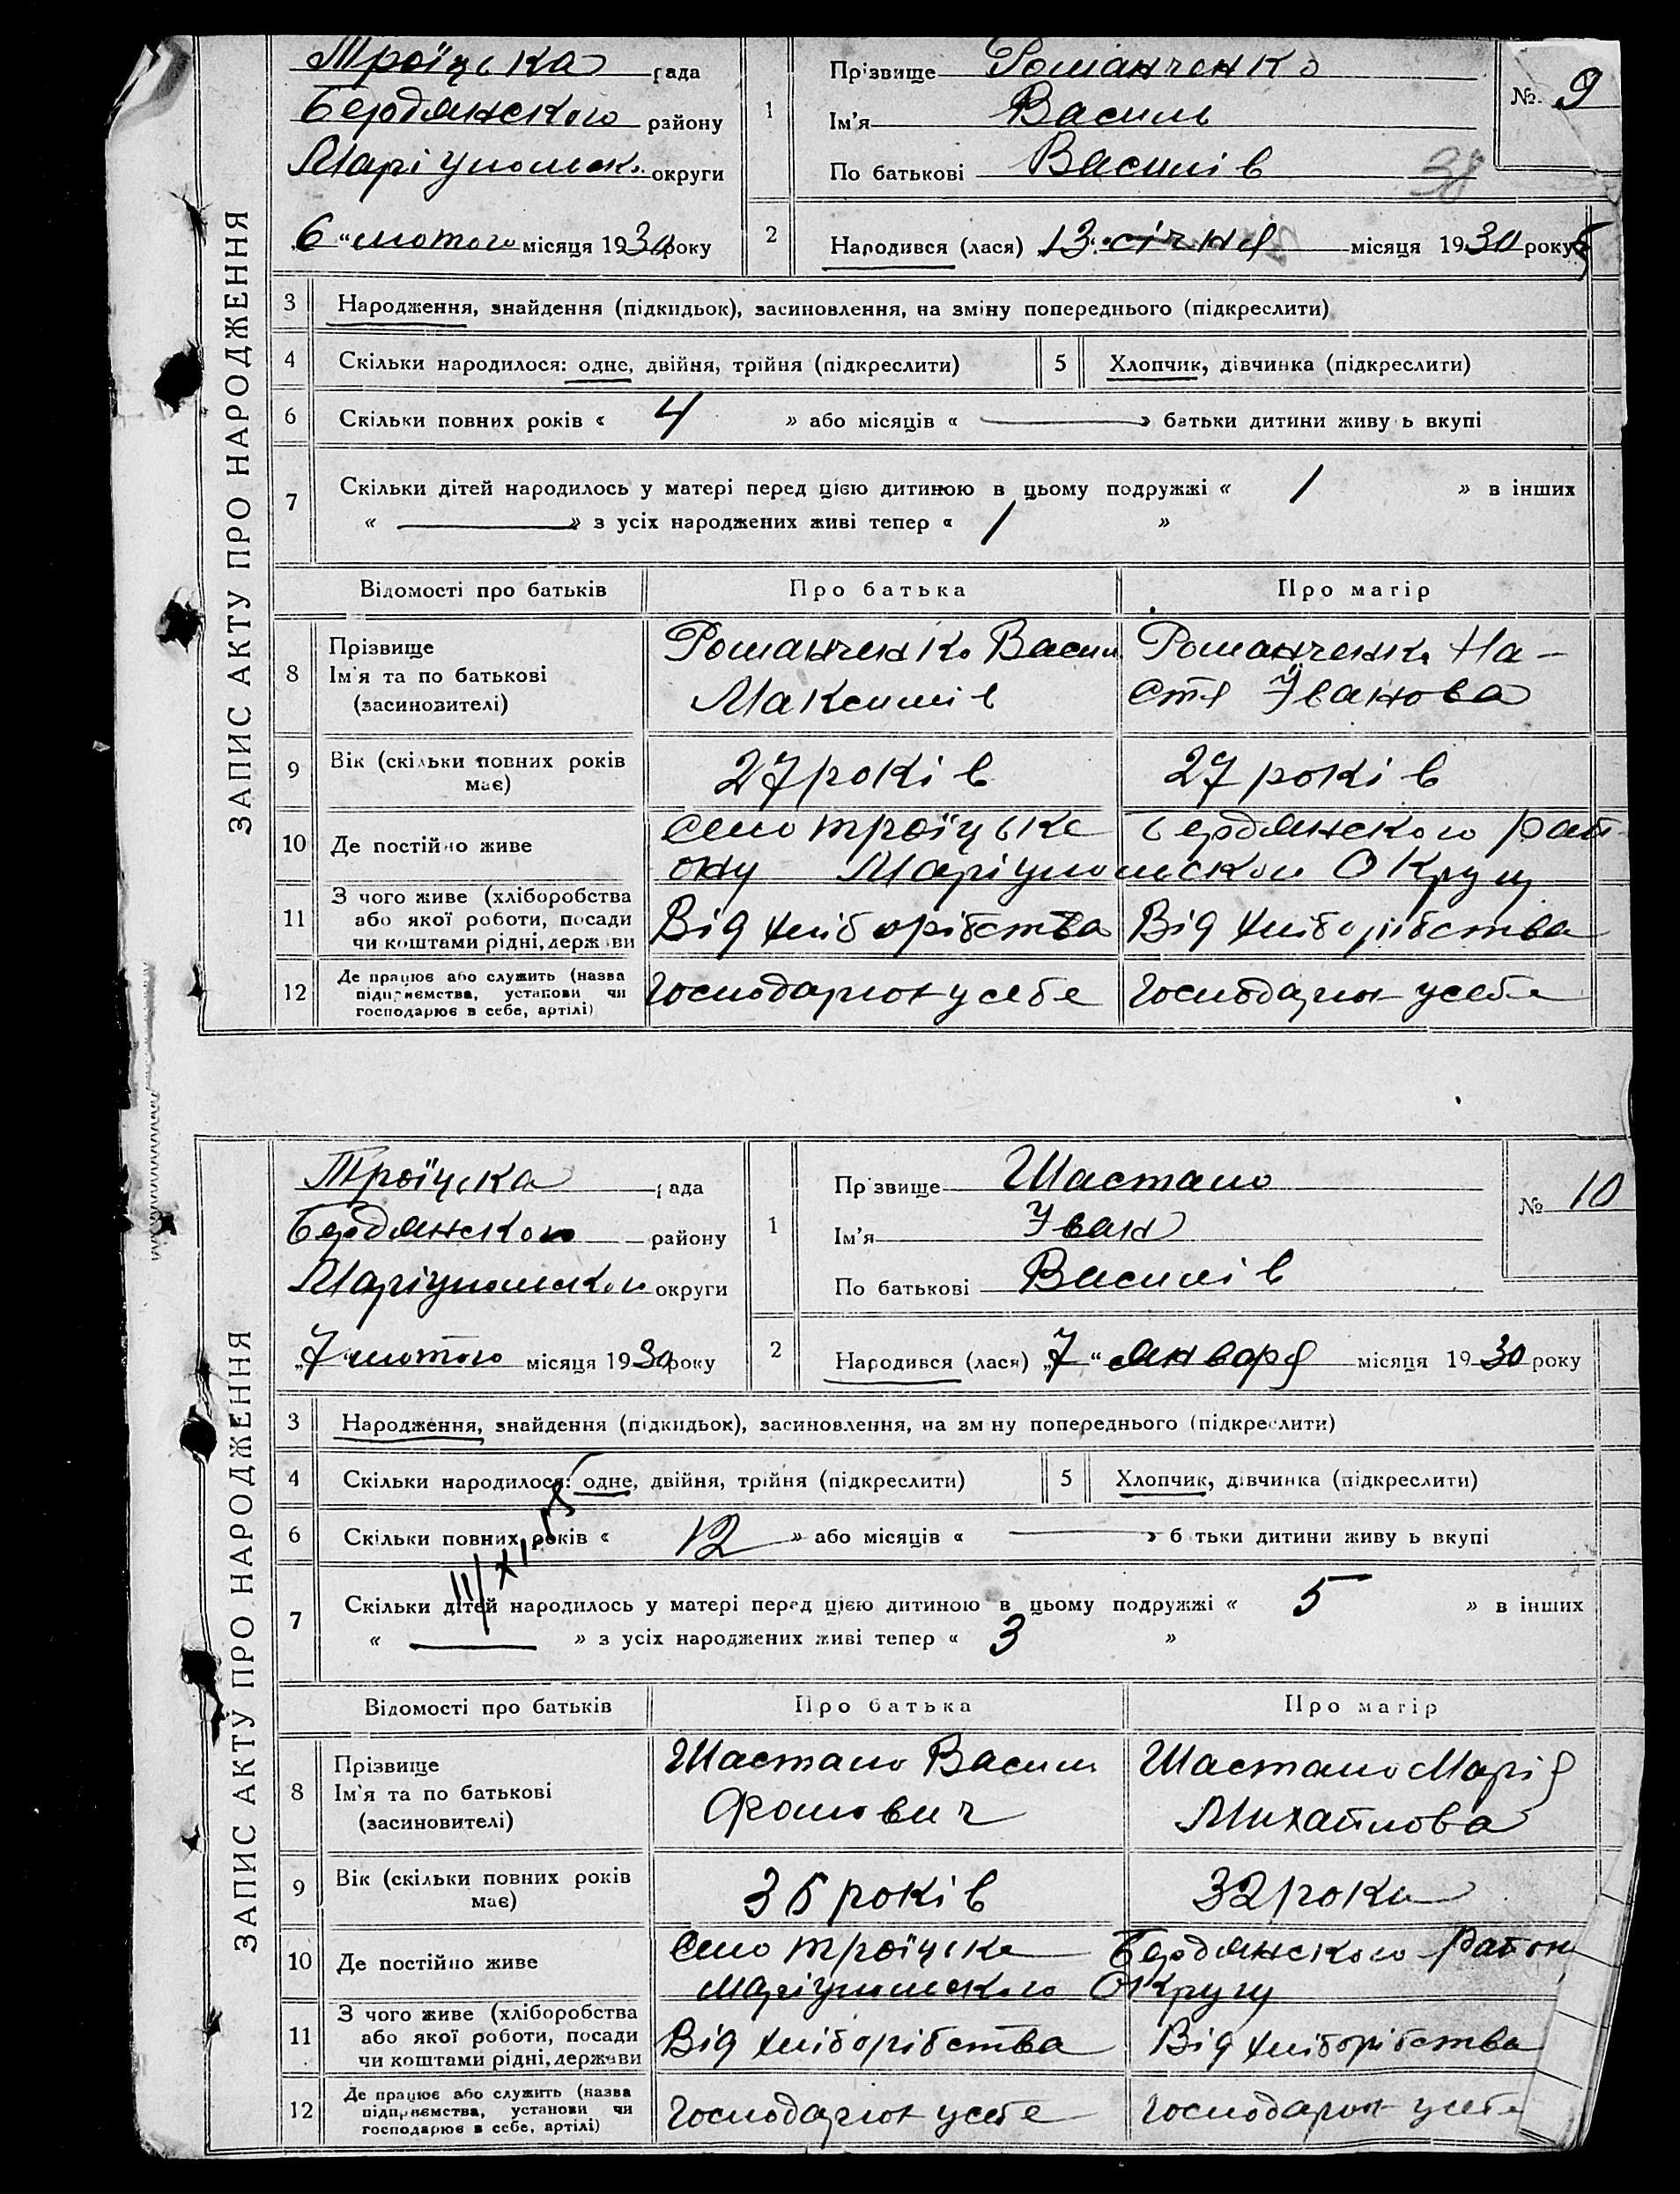 ЗАПИС АКТУ ПРО НАРОДЖЕННЯ
Троїцька рада
Бердянского району
Маріупольск. округи
„6“ лютого місяця 1930 року
1 Прізвище Романченко
Ім'я Василь
По батькові Василів
№ 9
38
2 Народився (лася) „13“ січня місяця 1930 року
3 Народження, знайдення (підкидьок), засиновлення, на зміну попереднього (підкреслити)
4 Скільки народилося: одне, двійня, трійня (підкреслити) 5 Хлопчик, дівчинка (підкреслити)
6 Скільки повних років « 4 » або місяців « — » батьки дитини живуть вкупі
7 Скільки дітей народилось у матері перед цією дитиною в цьому подружжі « 1 » в інших
« — » з усіх народжених живі тепер « 1 »
Відомості про батьків Про батька Про матір
8 Прізвище
Ім'я та по батькові
(засиновителі)
Романченко Васил
Максимів
Романченко На-
стя Іванова
9 Вік (скільки повних років
має)
27 років 27 років
10 Де постійно живе
село троїцьке Бердянского рай-
ону Маріупольского Округу
11 З чого живе (хліборобства
або якої роботи, посади
чи коштами рідні, держави
Від хліборібства Від хліборібства
12 Де працює або служить (назва
підприємства, установи чи
господарює в себе, артілі)
Господарюн усебе Господарюн усебе
ЗАПИС АКТУ ПРО НАРОДЖЕННЯ
Троїцка рада
Бердянского району
Маріупольского округи
„7“ лютого місяця 1930 року
1 Прізвище Шастало
Ім'я Іван
По батькові Василів
№ 10
2 Народився (лася) „7“ января місяця 1930 року
3 Народження, знайдення (підкидьок), засиновлення, на зміну попереднього (підкреслити)
4 Скільки народилося: одне, двійня, трійня (підкреслити) 5 Хлопчик, дівчинка (підкреслити)
6 Скільки повних років « 12 » або місяців « — » батьки дитини живуть вкупі
7 Скільки дітей народилось у матері перед цією дитиною в цьому подружжі « 5 » в інших
« — » з усіх народжених живі тепер « 3 »
Відомості про батьків Про батька Про матір
8 Прізвище
Ім'я та по батькові
(засиновителі)
Шастало Васил
Фомович
Шастало Марія
Михайлова
9 Вік (скільки повних років
має)
35 років 32 роки
10 Де постійно живе
село троїцке Бердянского Район
Маріупольского Округу
11 З чого живе (хліборобства
або якої роботи, посади
чи коштами рідні, держави
Від хліборібства Від хліборібства
12 Де працює або служить (назва
підприємства, установи чи
господарює в себе, артілі)
Господарюн усебе Господарюн усебе